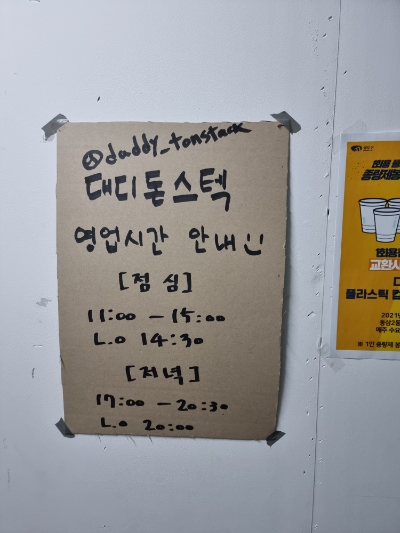 @daddy_tonstack
대디돈스텍
영업시간 안내
[점심]
11:00 - 15:00
L.O 14:30
[저녁]
17:00 - 20:30
L.O 20:00
플라스틱 컵
2021년
동상2동
매주 수요